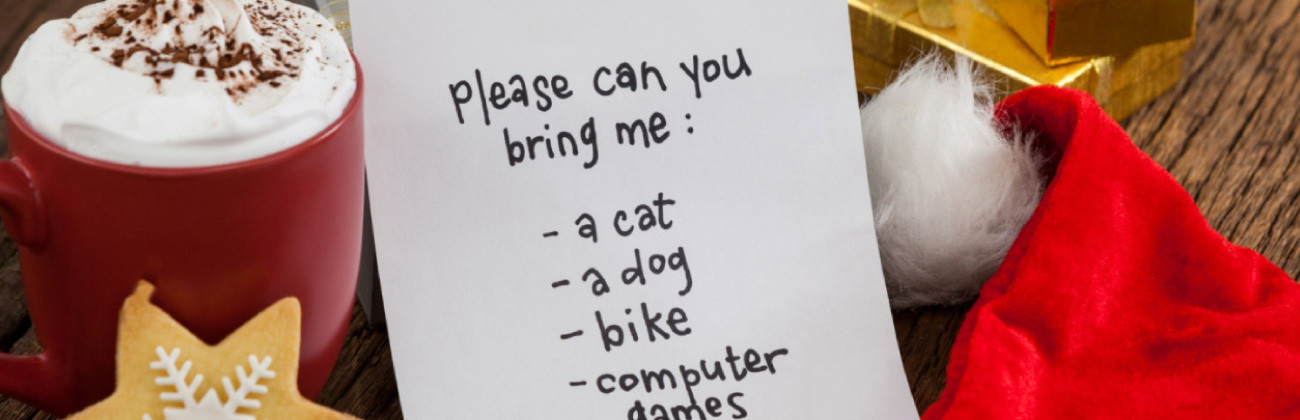 please can you
bring me :
- a cat
- a dog
- bike
- computer
games